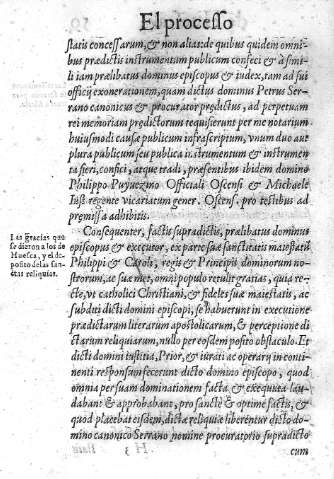 El processo
statis concessarum, & non alias: de quibus quidem omni-
bus prædictis instrumentum publicum confeci & à simi-
li iam prælibatus dominus episcopus & iudex, tam ad sui
officij exonerationem, quam dictus dominus Petrus Ser-
rano canonicus & procurator prædictus, ad perpetuam
rei memoriam prædictorum requisierunt per me notarium
huiusmodi causæ publicum infrascriptum, vnum duo aut
plura publicum seu publica instrumentum & instrumen
ta fieri, confici, atque tradi, præsentibus ibidem domino
Philippo Puyuezino Officiali Oscensi & Michaele
Iust regente vicariatum gener. Oscens. pro testibus ad
præmissa adhibitis.
Consequenter, factis supradictis, prælibatus dominus
episcopus & executor, ex parte suæ sanctitatis maiestati
Philippi & Caroli, regis & Principis dominorum no-
strorum, ac sua met, omni populo retulit gratias, quia re-
cte, vt catholici Christiani, & fideles suæ maiestatis, ac
subditi dicti domini episcopi, se habuerunt in executione
prædictarum literarum apostolicarum, & perceptione di
ctarum reliquiarum, nullo per eosdem posito obstaculo. Et
dicti domini iustitia, Prior, & iurati ac operarij in conti-
nenti responsum fecerunt dicto domino episcopo, quod
omnia per suam dominationem facta & exequuta lau-
dabant & approbabant, pro sanctè & optimè factis, &
quod placebat eisdem, dictæ reliquiæ liberentur dicto do-
mino canonico Serrano nomine procuratorio supradicto
H 3
cum
Las gracias que
se dieron a los de
Huesca, y el de-
posito de las san-
ctas reliquias.